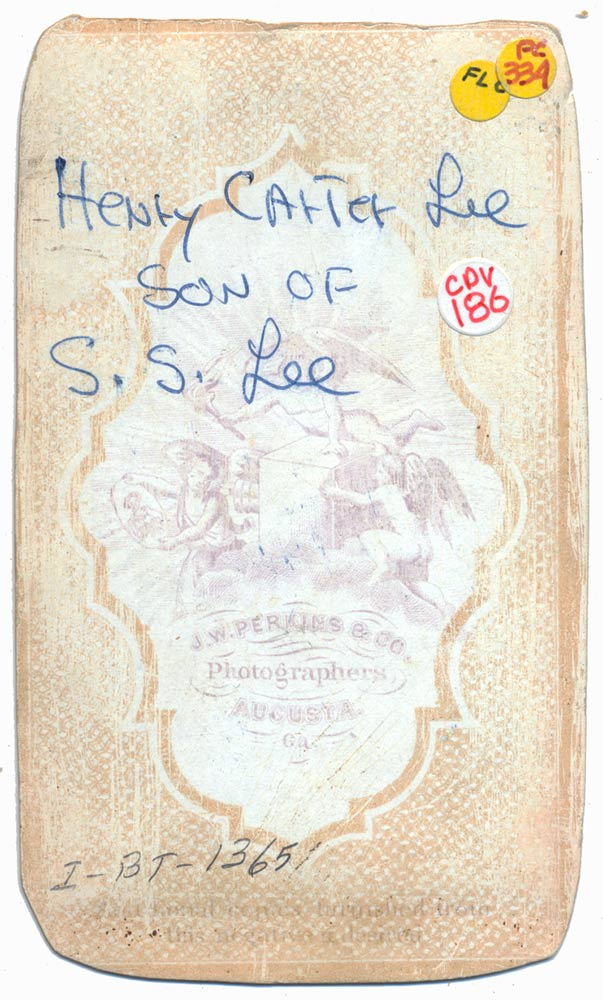 PC
334
FLC
Henry Carter Lee
SON OF
S. S. Lee
CDV
186
J. W. PERKINS & CO.
Photographers
AUGUSTA.
Ga.
I-BT-1365
Additional copies furnished from
this negative if desired